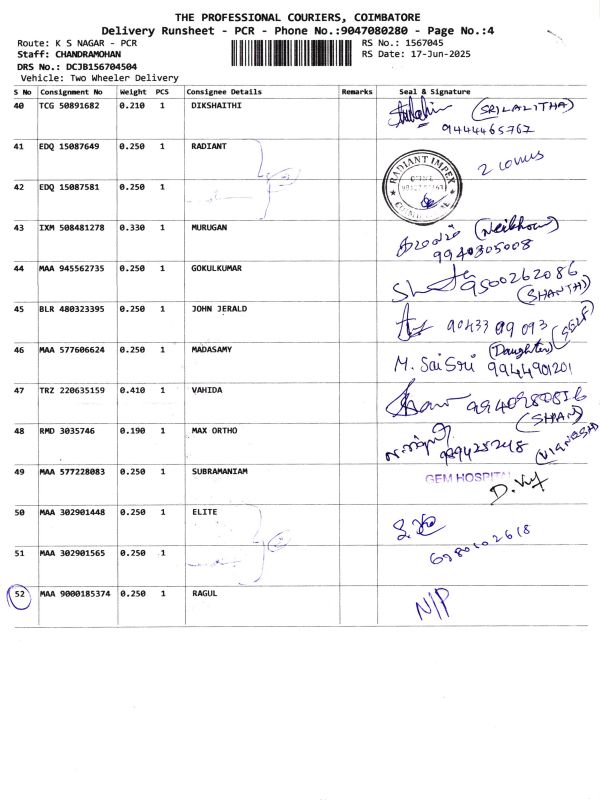 THE PROFESSIONAL COURIERS, COIMBATORE
Delivery Runsheet - PCR - Phone No.:9047080280 - Page No.:4
Route: K S NAGAR - PCR RS No.: 1567045
Staff: CHANDRAMOHAN RS Date: 17-Jun-2025
DRS No.: DCJB156704504
Vehicle: Two Wheeler Delivery
S No Consignment No Weight PCS Consignee Details Remarks Seal & Signature
40 TCG 50891682 0.210 1 DIKSHAITHI (SRILALITHA)
9444465767
41 EDQ 15087649 0.250 1 RADIANT RADIANT IMPEX
42 EDQ 15087581 0.250 1
43 IXM 508481278 0.330 1 MURUGAN
9940305008
44 MAA 945562735 0.250 1 GOKULKUMAR 9500262086
(SHANTHI)
45 BLR 480323395 0.250 1 JOHN JERALD 90433 99093 (SELF)
46 MAA 577606624 0.250 1 MADASAMY (Daughter)
M. Sai Sri 9944901201
47 TRZ 220635159 0.410 1 VAHIDA
48 RMD 3035746 0.190 1 MAX ORTHO
49 MAA 577228083 0.250 1 SUBRAMANIAM GEM HOSPITAL
50 MAA 302901448 0.250 1 ELITE
51 MAA 302901565 0.250 1
52 MAA 9000185374 0.250 1 RAGUL N/P